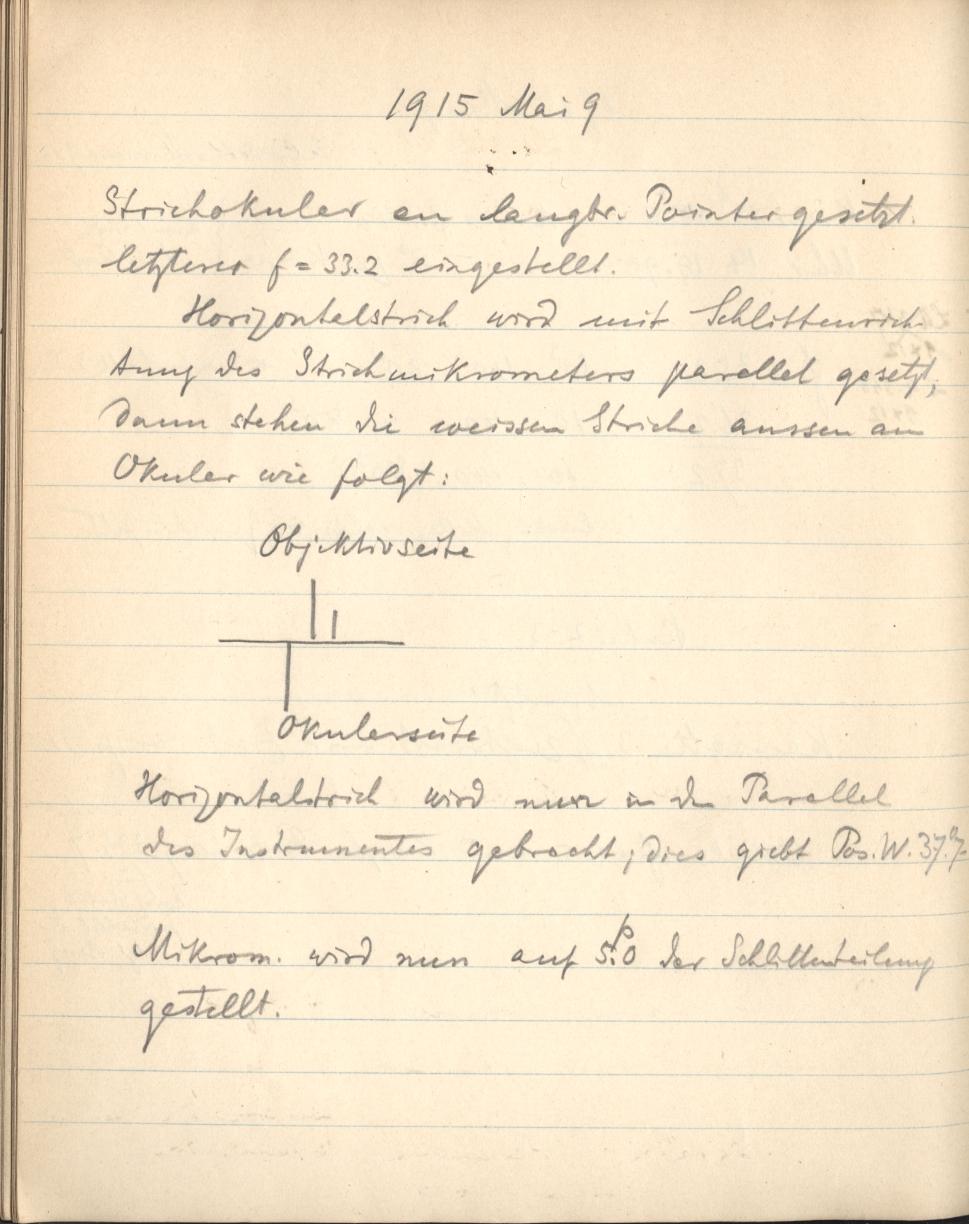 1915 Mai 9
Strichokular an langbr. Pointer gesetzt.
letzterer f = 33.2 eingestellt.
Horizontalstrich wird mit Schlittenrich-
tung des Strichmikrometers parallel gesetzt,
dann stehen die weissen Striche aussen am
Okular wie folgt:
Objektivseite
Okularseite
Horizontalstrich wird nun in den Parallel
des Instrumentes gebracht; dies giebt Pos.W. 37.°7
Mikrom. wird nun auf 5.ᵖ0 der Schlittenteilung
gestellt.